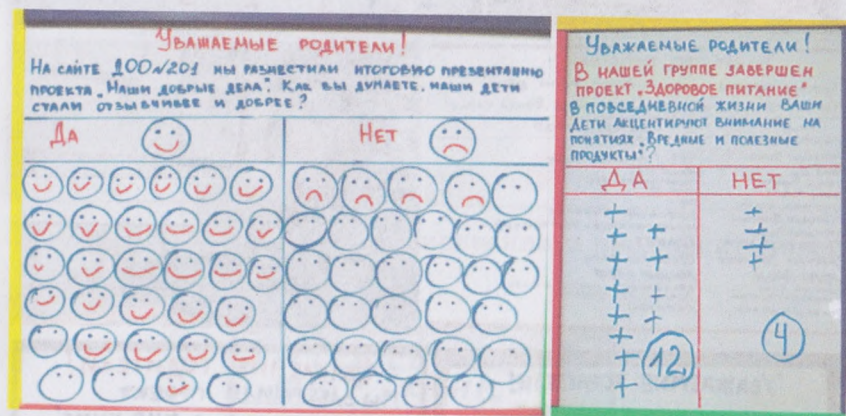 УВАЖАЕМЫЕ РОДИТЕЛИ!
НА САЙТЕ ДОО№201 МЫ РАЗМЕСТИЛИ ИТОГОВУЮ ПРЕЗЕНТАЦИЮ
ПРОЕКТА „НАШИ ДОБРЫЕ ДЕЛА". КАК ВЫ ДУМАЕТЕ, НАШИ ДЕТИ
СТАЛИ ОТЗЫВЧИВЕЕ И ДОБРЕЕ?
ДА НЕТ
УВАЖАЕМЫЕ РОДИТЕЛИ!
В НАШЕЙ ГРУППЕ ЗАВЕРШЕН
ПРОЕКТ „ЗДОРОВОЕ ПИТАНИЕ"
В ПОВСЕДНЕВНОЙ ЖИЗНИ ВАШИ
ДЕТИ АКЦЕНТИРУЮТ ВНИМАНИЕ НА
ПОНЯТИЯХ „ВРЕДНЫЕ И ПОЛЕЗНЫЕ
ПРОДУКТЫ"?
ДА НЕТ
12 4